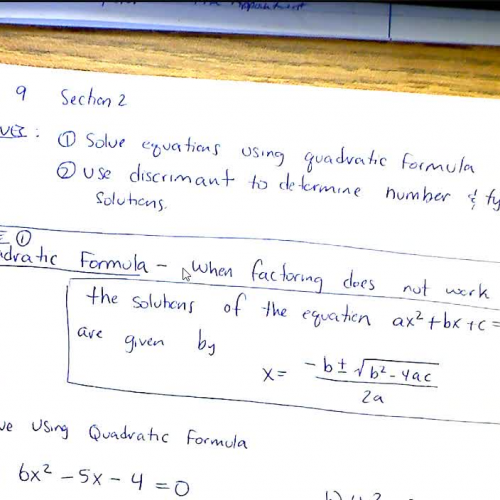 Appointment
9 Section 2
① Solve equations using quadratic formula
② Use discrimant to determine number & ty
Solutions.
①
adratic Formula - When factoring does not work
the solutions of the equation ax² + bx + c =
are given by
x = -b ± √b² - 4ac / 2a
ve Using Quadratic Formula
6x² - 5x - 4 = 0